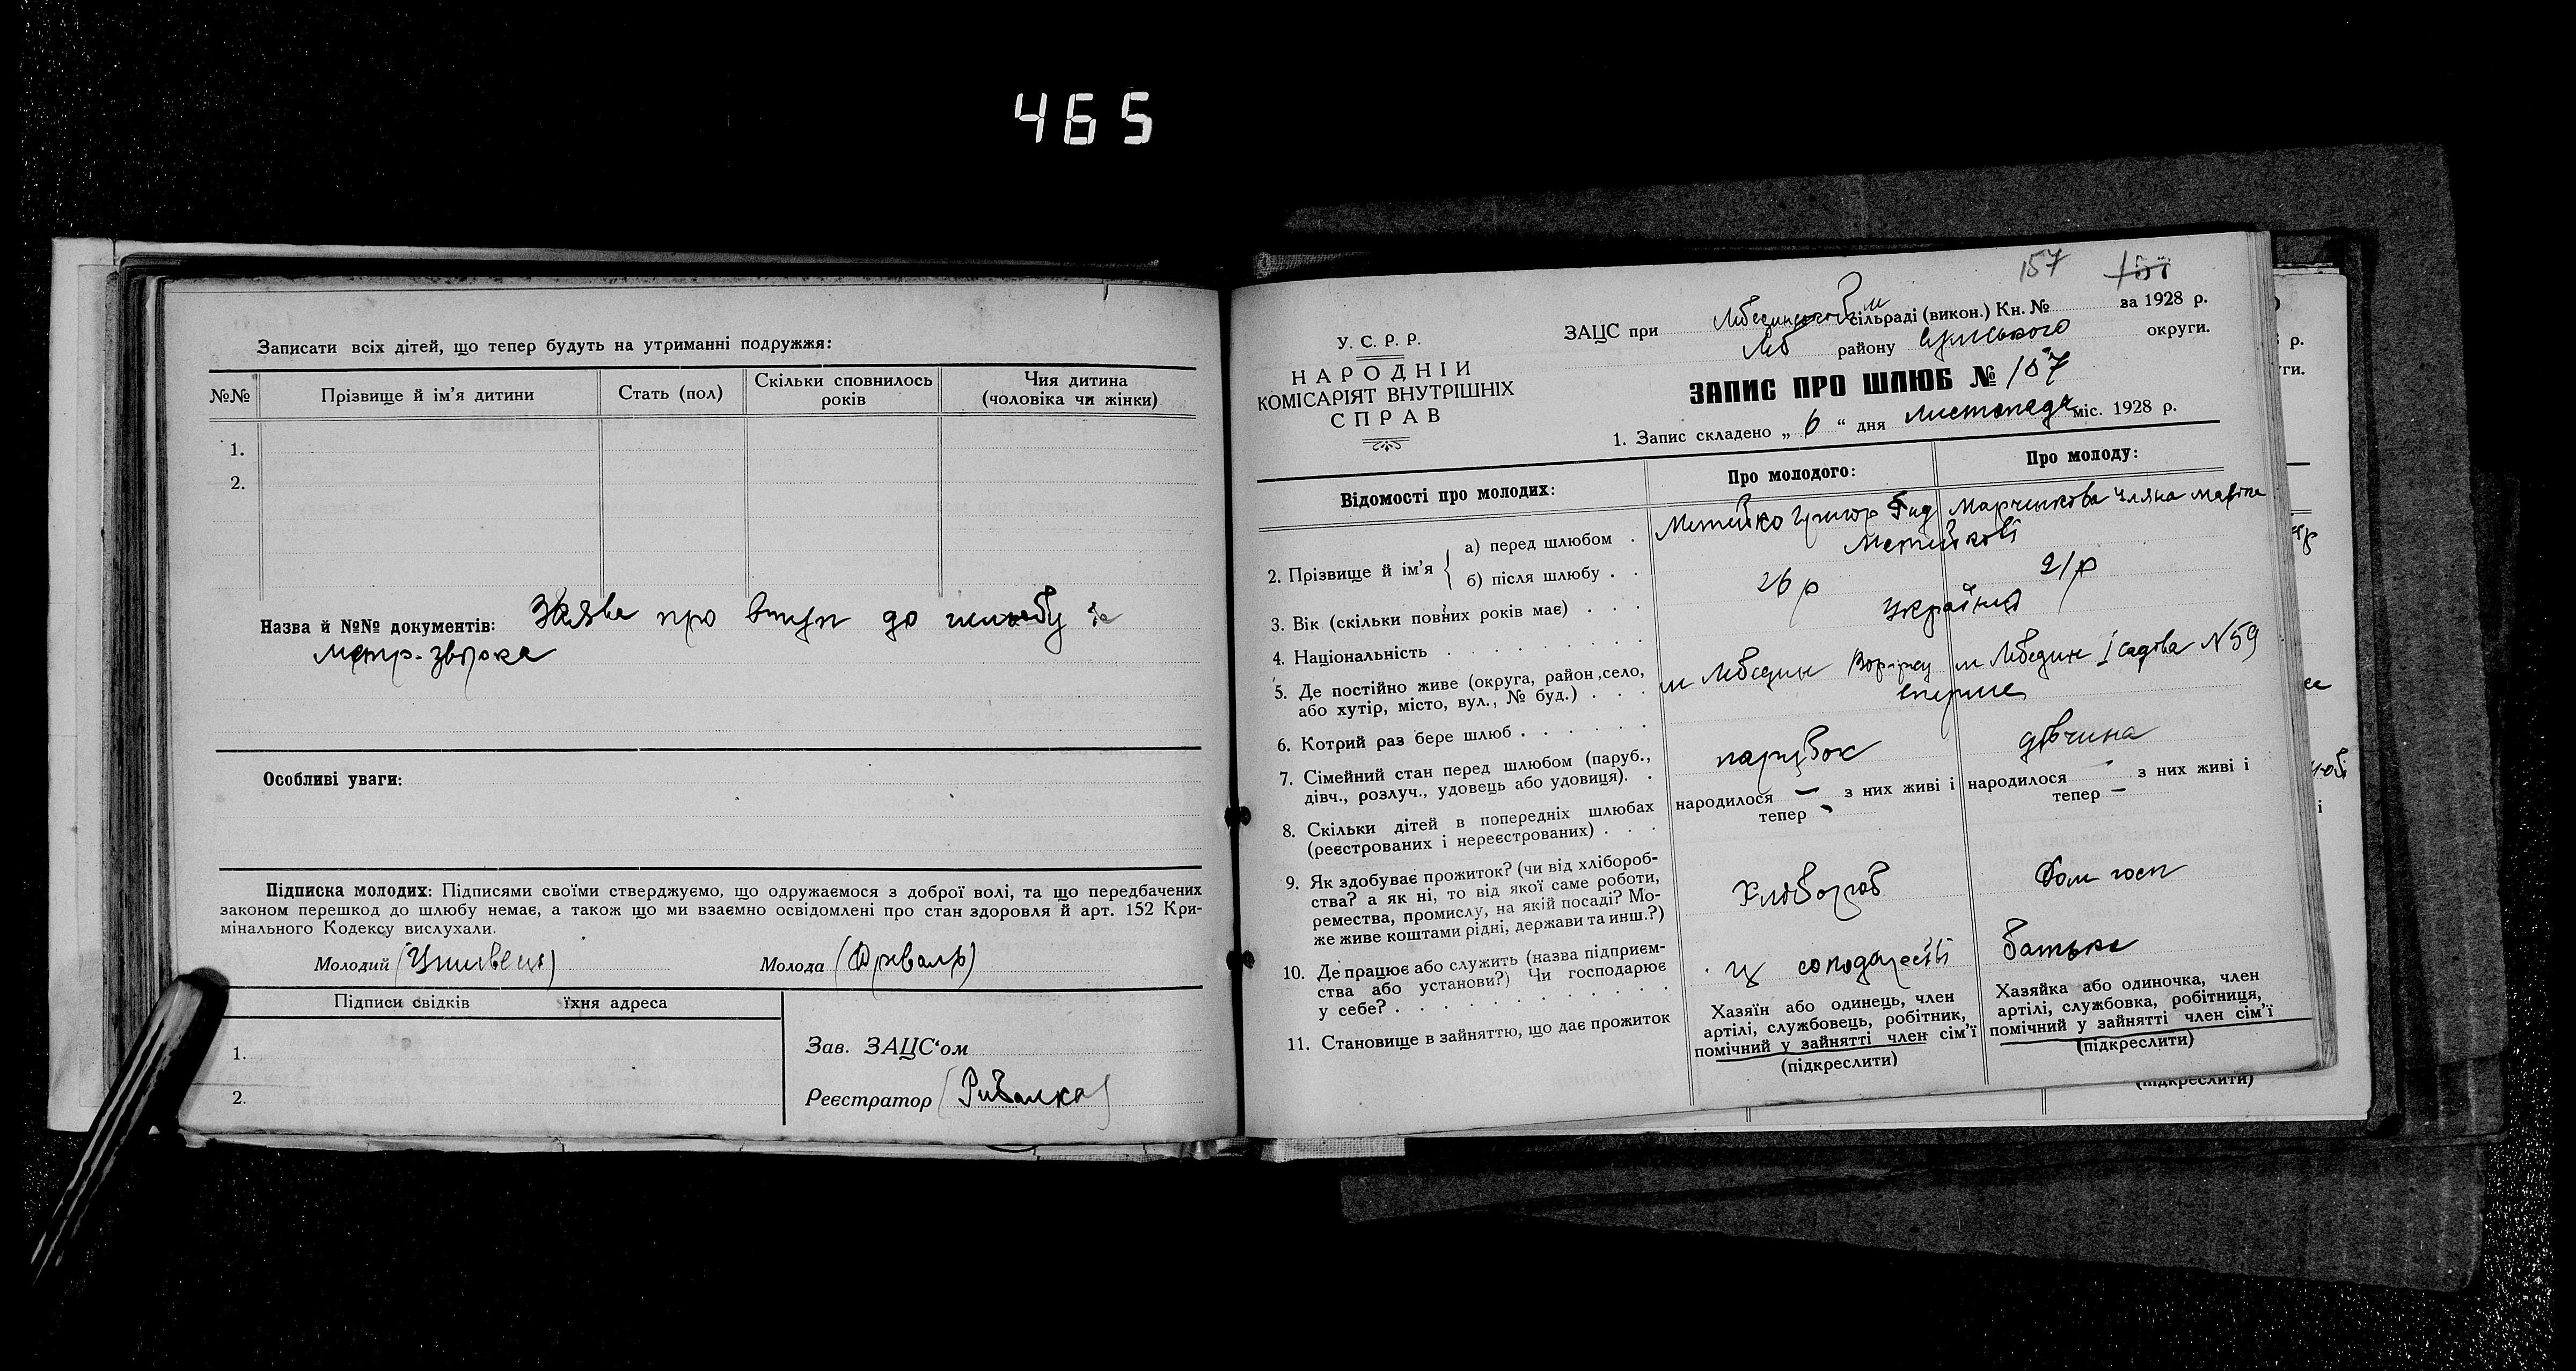 465
Записати всіх дітей, що тепер будуть на утриманні подружжя:
№№ Прізвище й ім'я дитини Стать (пол) Скільки сповнилось років Чия дитина (чоловіка чи жінки)
1.
2.
Назва й №№ документів: Заява про вступ до шлюбу
метр. звірока
Особливі уваги:
Підписка молодих: Підписями своїми стверджуємо, що одружаємося з доброї волі, та що передбачених
законом перешкод до шлюбу немає, а також що ми взаємно освідомлені про стан здоровля й арт. 152 Кри-
мінального Кодексу вислухали.
Молодий Молода
Підписи свідків їхня адреса
1.
2.
Зав. ЗАЦС'ом
Реєстратор (Рибалка)
157 157
У. С. Р. Р.
НАРОДНІЙ
КОМІСАРІЯТ ВНУТРІШНІХ
СПРАВ
ЗАЦС при сільраді (викон.) Кн. № за 1928 р.
Леб району Сумського округи.
ЗАПИС ПРО ШЛЮБ № 157
1. Запис складено „ 6 “ дня листопада міс. 1928 р.
Відомості про молодих: Про молодого: Про молоду:
2. Прізвище й ім'я
а) перед шлюбом . Григор Марченкова
б) після шлюбу . .
3. Вік (скільки повних років має) . . . 26 р 21 р
4. Національність . . . . . . . . Українці
5. Де постійно живе (округа, район, село,
або хутір, місто, вул., № буд.) . . . м Лебедин м Лебедин І садова N 59
6. Котрий раз бере шлюб . . . . . . вперше
7. Сімейний стан перед шлюбом (паруб.,
дівч., розлуч., удовець або удовиця). . парубок дівчина
8. Скільки дітей в попередніх шлюбах
(реєстрованих і нереєстрованих) . . .
народилося — з них живі і
тепер -
народилося - з них живі і
тепер —
9. Як здобуває прожиток? (чи від хлібороб-
ства? а як ні, то від якої саме роботи,
ремества, промислу, на якій посаді? Мо-
же живе коштами рідні, держави та инш.?)
Хлібороб Дом госп
10. Де працює або служить (назва підприєм-
ства або установи?) Чи господарює
у себе? . . . . . . . . . . .
у батька
11. Становище в зайняттю, що дає прожиток
Хазяїн або одинець, член
артілі, службовець, робітник,
помічний у зайнятті член сім'ї
(підкреслити)
Хазяйка або одиночка, член
артілі, службовка, робітниця,
помічний у зайнятті член сім'ї
(підкреслити)
(підкреслити)